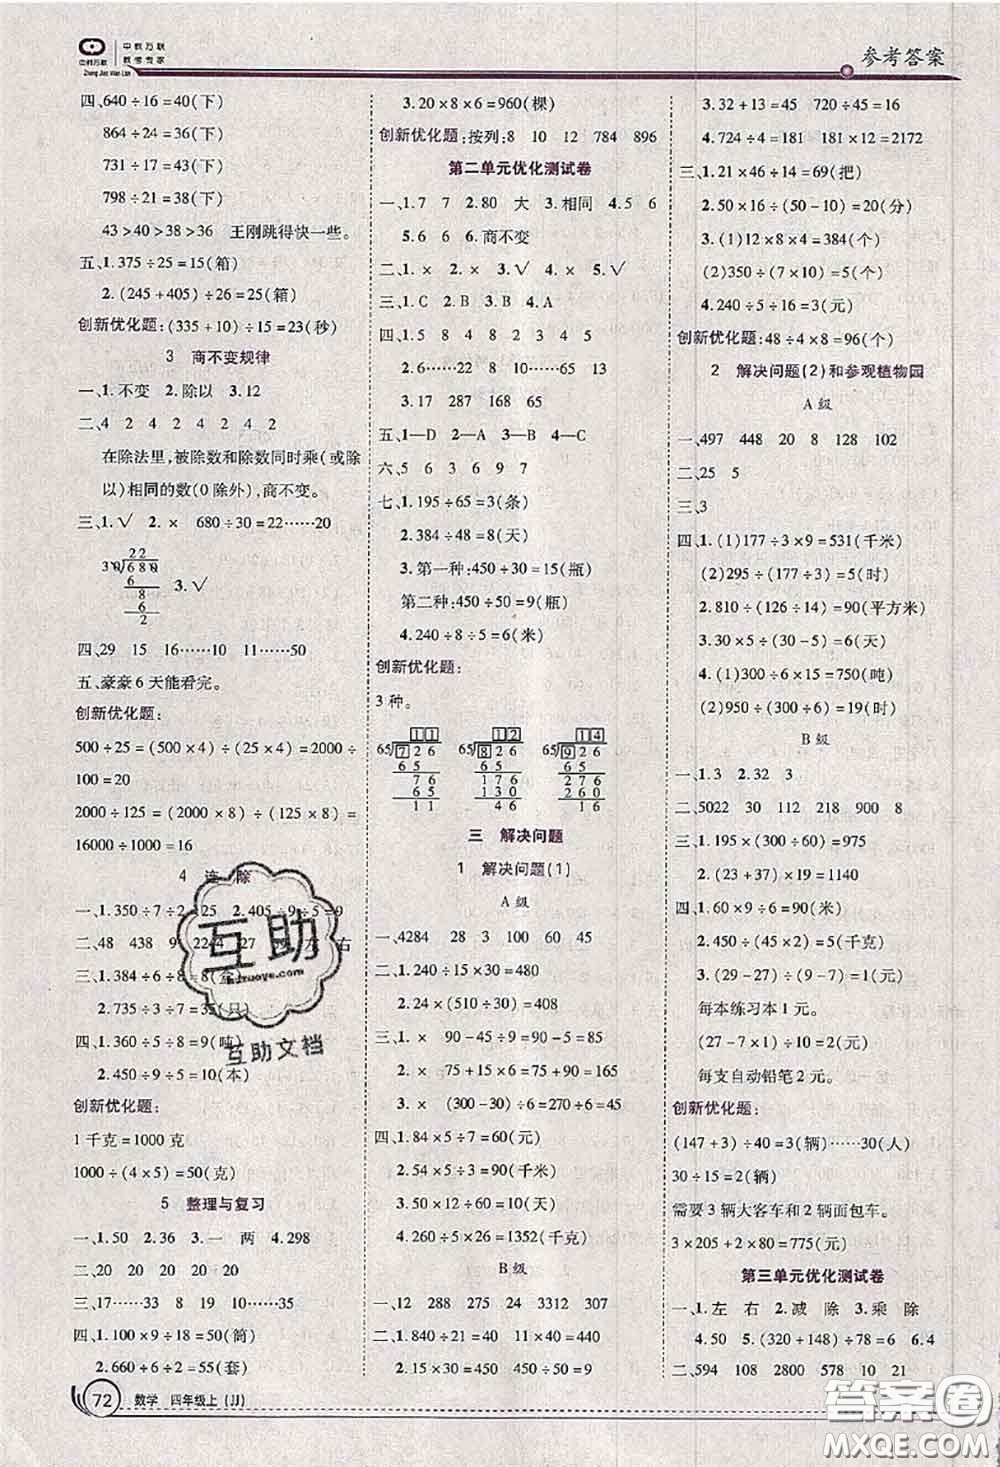 中教万联
教考专家
中教万联
Zhong Jiao Wan Lian
参考答案
四、640÷16=40(下)
864÷24=36(下)
731÷17=43(下)
798÷21=38(下)
43>40>38>36 王刚跳得快一些。
五、1.375÷25=15(箱)
2.(245+405)÷26=25(箱)
创新优化题:(335+10)÷15=23(秒)
3 商不变规律
一、1.不变 2.除以 3.12
二、4 2 4 2 4 2 4 2
在除法里,被除数和除数同时乘(或除
以)相同的数(0除外),商不变。
三、1.√ 2.× 680÷30=22……20
22
30)680
6
8
6
2
3.√
四、29 15 16……10 11……50
五、豪豪6天能看完。
创新优化题:
500÷25=(500×4)÷(25×4)=2000÷
100=20
2000÷125=(2000×8)÷(125×8)=
16000÷1000=16
4 连 除
一、1.350÷7÷2=25 2.405÷9÷5=9
二、48 438 9 2244 27 右
三、1.384÷6÷8=8
2.735÷3÷7=35(只)
四、1.360÷5÷8=9(吨)
2.450÷9÷5=10(本)
创新优化题:
1千克=1000克
1000÷(4×5)=50(克)
5 整理与复习
一、1.50 2.36 3.一 两 4.298
二、20 20 20 20 20
三、17……16 33……10 17……35
四、1.100×9÷18=50(筒)
2.660÷6÷2=55(套)
3.20×8×6=960(棵)
创新优化题:按列:8 10 12 784 896
第二单元优化测试卷
一、1.7 7 2.80 大 3.相同 4.5 6
5.6 6 6.商不变
二、1.× 2.× 3.√ 4.× 5.√
三、1.C 2.B 3.B 4.A
四、1.5 8 4 8 2 3 4 5
2.6……22 8 10……65 13
3.17 287 168 65
五、1—D 2—A 3—B 4—C
六、5 6 3 6 9 7
七、1.195÷65=3(条)
2.384÷48=8(天)
3.第一种:450÷30=15(瓶)
第二种:450÷50=9(瓶)
4.240÷8÷5=6(米)
创新优化题:
3种。
11 12 14
65)726 65)826 65)926
65 65 65
76 176 276
65 130 260
11 46 16
三 解决问题
1 解决问题(1)
A级
一、4284 28 3 100 60 45
二、1.240÷15×30=480
2.24×(510÷30)=408
三、1.× 90-45÷9=90-5=85
2.× 75+15×6=75+90=165
3.× (300-30)÷6=270÷6=45
四、1.84×5÷7=60(元)
2.450÷5×10=900(千米)
3.50×2÷10=10(天)
4.260÷5×26=1352(千克)
B级
一、12 288 275 24 3312 307
二、1.420÷12×14=490
2.450÷(450÷9)=450÷50=9
3.32+13=45 720÷45=16
4.724÷4=181 181×12=2172
三、1.21×46÷14=69(把)
2.50×16÷(50-10)=20(分)
3.(1)12×4×8=384(个)
(2)350÷(7×10)=5(个)
4.240÷5÷16=3(元)
创新优化题:48÷4×8=96(个)
2 解决问题(2)和参观植物园
A级
一、497 448 20 8 128 102
二、25 5
三、3
四、1.(1)177÷3×9=531(千米)
(2)295÷(177÷3)=5(时)
2.810÷(126÷14)=90(平方米)
3.30×5÷(30-5)=6(天)
4.(1)300÷6×15=750(吨)
(2)950÷(300÷6)=19(时)
B级
一、1.3 2.32 3
二、5022 30 112 30 900 8
三、1.195×(300÷60)=975
2.(23+37)×19=1140
四、1.60×9÷6=90(米)
2.450÷(45×2)=5(千克)
3.(42-27)÷(25-10)=1(元)
每本练习本1元。
(27-1×7)÷10=2(元)
每支自动铅笔2元。
创新优化题:
(147+3)÷40=3(辆)……30(人)
30÷15=2(辆)
需要3辆大客车和2辆面包车。
3×205+2×80=775(元)
第三单元优化测试卷
一、1.左 右 2.减 除 3.乘 除
4.50 5.(320+148)÷78=6 6.4
二、594 108 2800 578 10 21
72 数学 四年级上(JJ)
互助
互助文档
答案圈
MXQE.COM